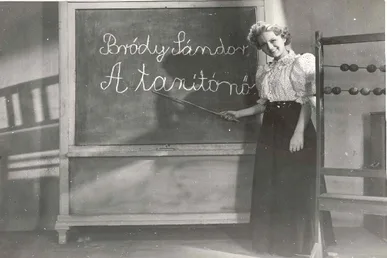 Bródy Sándor
A tanítónő